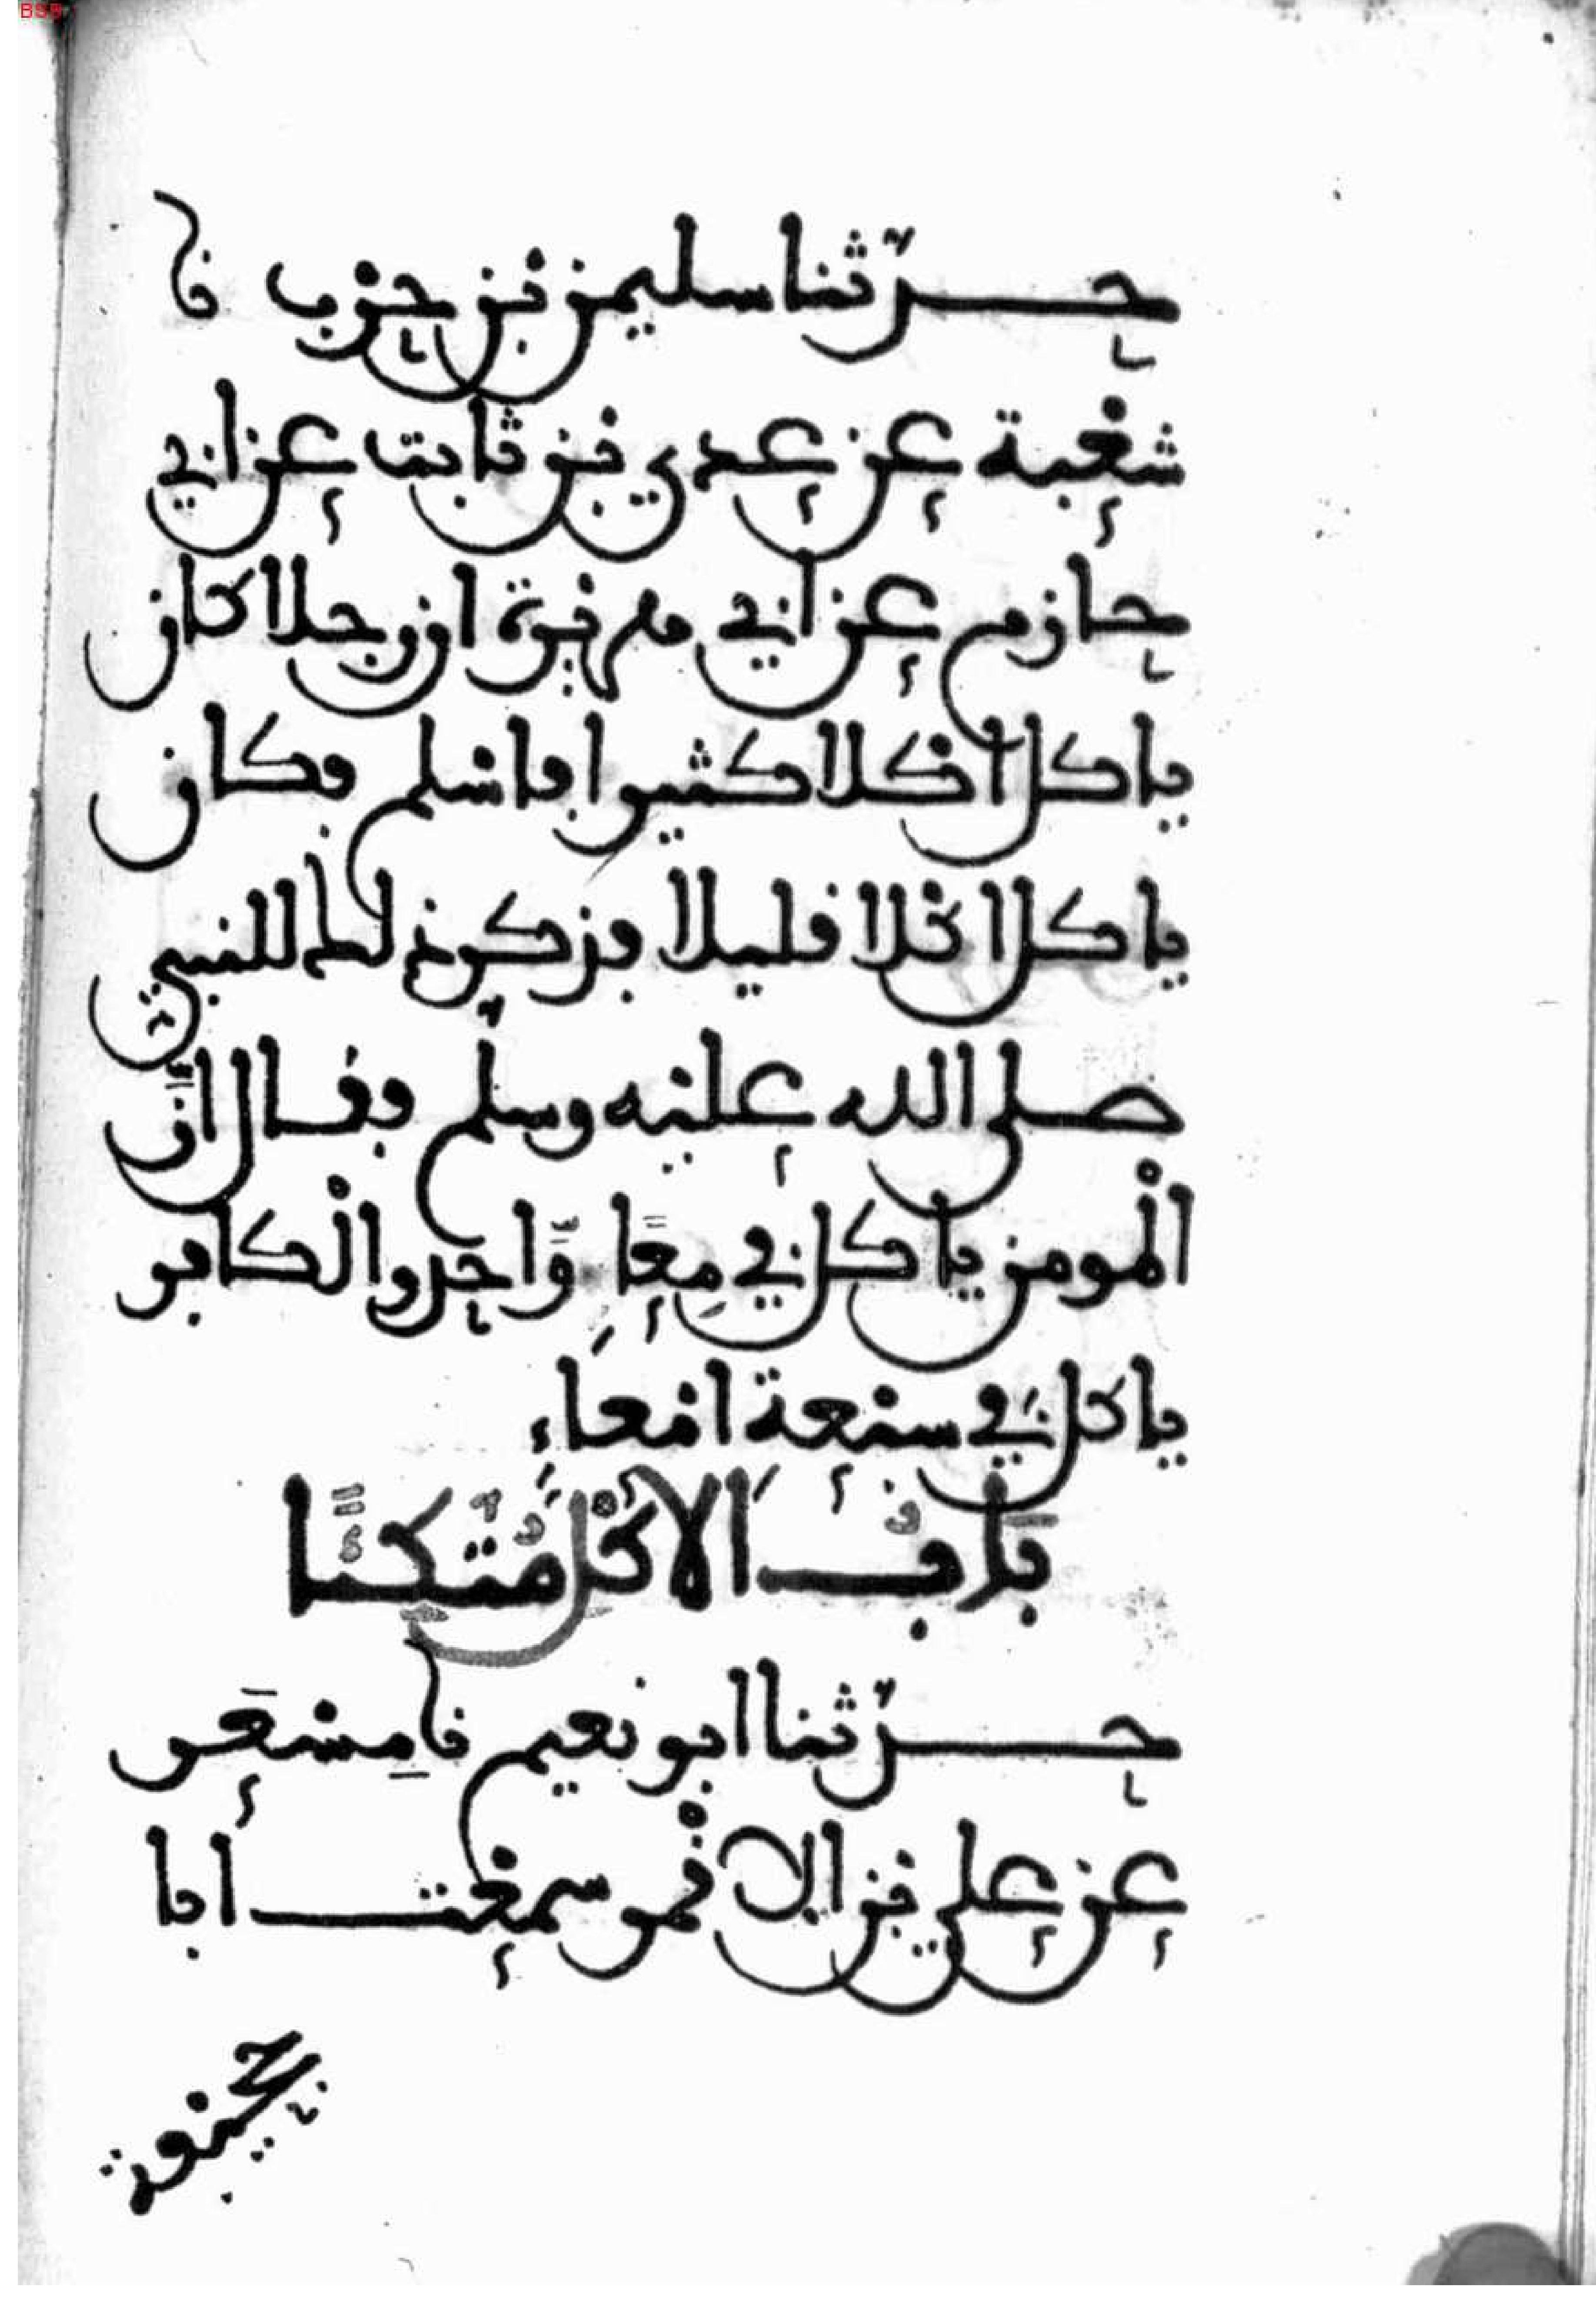 BSB
حدثنا سليمن بن حرب نا
شعبة عن عدي بن ثابت عن ابي
حازم عن ابي هريرة ان رجلا كان
ياكل اكلا كثيرا فاسلم فكان
ياكل اكلا قليلا فذكر ذلك للنبيء
صلى الله عليه وسلم فقال ان
المومن ياكل في معا واحد والكافر
ياكل في سبعة امعاء
باب الاكل متكئا
حدثنا ابو نعيم نا مسعر
عن علي بن الاقمر سمعت ابا
جحيفة